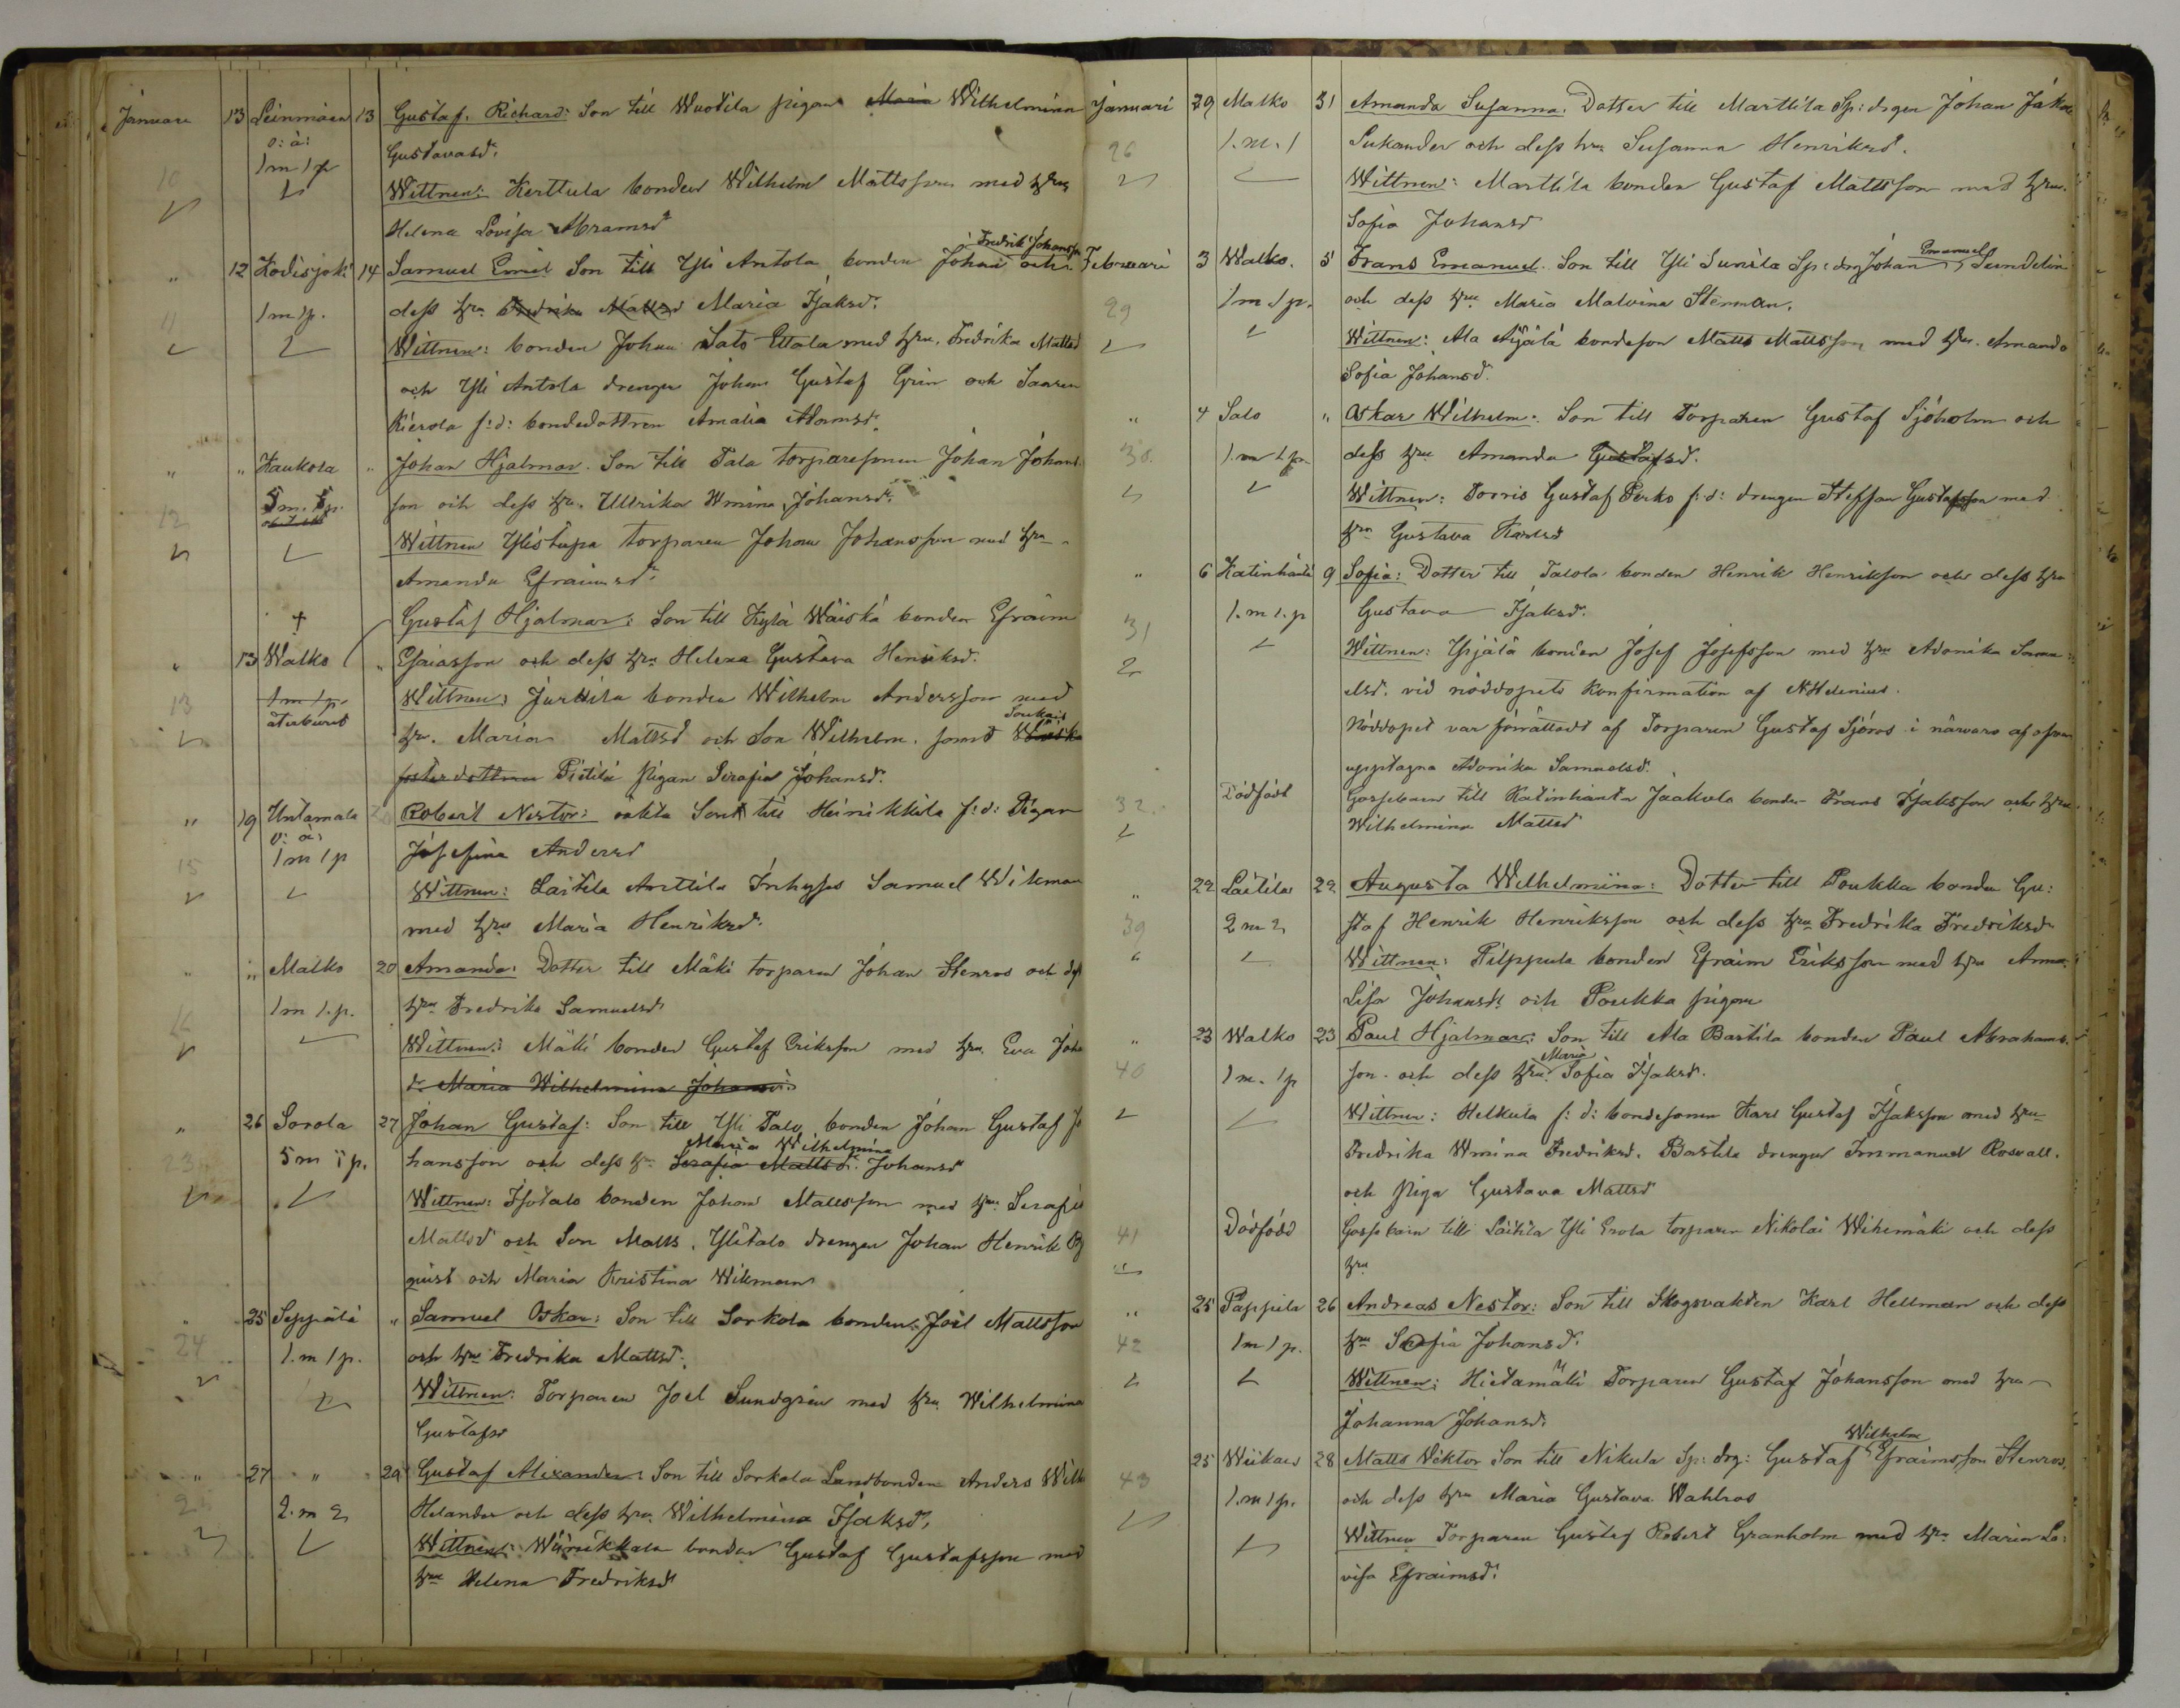 Januari 13 Leinmäen 13 Gustaf. Richard: Son till Wuotila pigan Maria Wilhelmina
o: ä: Gustavasd:
1 m 1 p
10 Wittnen: Kerttula bonden Wilhelm Mattsson med hru
Helena Lovisa Abramsd
Fredrik Johansson
" 12 Kodisjoki 14 Samuel Emil Son till Yli Antola bonden Johan och
1 m 1 p. dess hru Fredrika Mattsd Maria Isaksd:
11 Wittnen: bonden Johan Sato Ettala med hru. Fredrika Mattsd
och Yli Antola drengen Johan Gustaf Grön och
Kierola f: d: bondedottren Amalia Adamsd.
" " Kaukola " Johan Hjalmar. Son till Tala torparesonen Johan Johans
5 m. 5 p. son och dess hru. Ullrika Wmina Johansd:
12 Wittnen Ylistupa torparen Johan Johansson med hru
Amanda Efraimsd:
+ Gustaf Hjalmar: Son till Kylä Wäiskä bonden Efraim
" 13 Walko " Esaiasson och dess hru Helena Gustava Henriksd.
13 1 m 1 p. Wittnen: Jurttila bonden Wilhelm Andersson med
återburet hru. Maria Mattsd och Son Wilhelm. samt
fosterdottren Pietilä Pigan Serafia Johansd.
" 19 Untamala 20 Robert Nestor: oäkta Son till Heinikkila f: d: Pigan
o: ä:
1 m 1 p Josefina Andersd
15 Wittnen: Laitila Anttila Inhyses Samuel Wikman
med hru Maria Henriksd.
" " Malko 20 Amanda: Dotter till Mäki torparen Johan Stenros och dess
1 m 1. p. hru Fredrika Samuelsd
16 Wittnen: Mäki bonden Gustaf Eriksson med hru. Eva Joha
d. Maria Wilhelmina Johansd.
" 26 Sorola 27 Johan Gustaf: Son till Yli Talo bonden Johan Gustaf Jo
Maria Wilhelmina
23 5 m 5 p. hansson och dess hru Serafia Mattsd. Johansd
Wittnen: Isotalo bonden Johan Mattsson med hru: Serafia
Mattsd och Son Matts. Ylitalo drengen Johan Henrik
quist och Maria Kristina Wikman
" 25 Seppälä " Samuel Oskar: Son till Sorkola bonden Joel Mattsson
24 1. m 1 p. och hru Fredrika Mattsd.
Wittnen: Torparen Joel Sundgrén med hru. Wilhelmina
Gustafsd
" 27 " 29 Gustaf Alexander: Son till Sorkola Landbonden Anders Wilh
25 2. m 2 Helander och dess hru. Wilhelmina Isaksd,
Wittnen: bonden Gustaf Gustafsson med
hru Helena Fredriksd
Januari 29 Malko 31 Amanda Susanna: Dotter till Marttila Sp: drgen Johan Jakob
26 1. m. 1 Sukander och dess hru Susanna Henriksd.
Wittnen: Marttila bonden Gustaf Mattsson med hru.
Sofia Johansd
Februari 3 Walko. 5 Frans Emanuel. Son till Yli Sunila Sp: drg Johan Emanuel Sundelin
29 1 m 1 p. och dess hru Maria Malvina Stenman.
Wittnen: Ala Äijälä bondeson Matts Mattsson med hru. Amanda
Sofia Johansd.
" 4 Salo " Oskar Wilhelm: Son till Torparen Gustaf Sjöholm och
30. 1. m 1 p. dess hru Amanda Gustafsd.
Wittnen: Torris Gustaf Perko f: d: drengen Steffan Gustafsson med
hru Gustava Karlsd
" 6 Katinhänta 9 Sofia: Dotter till Talola bonden Henrik Henriksson och dess hru
31 1. m 1. p Gustava Isaksd.
Wittnen: Yrjälä bonden Josef Josefsson med hru Adonika Samu:
elsd. vid nöddopets konfirmation af N Helenius.
Nöddopet var förrättadt af Torparen Gustaf Sjöros i närvaro af ofvan
upptagna Adonika Samuelsd.
32. Dödfödt Gossebarn till Katinhänta Jaakola bonden Frans Isaksson och hru
Wilhelmina Mattsd
" 22 Laitila 22 Augusta Wilhelmina: Dotter till Poukka bonden Gu:
39 2 m 2 staf Henrik Henriksson och dess hru Fredrika Fredriksd.
Wittnen: Pilppula bonden Efraim Eriksson med hru Anna
Lisa Johansd: och Poukka pigan
" 23 Walko 23 Paul Hjalmar: Son till Ala Bastila bonden Paul Abrahams.
Maria
40 1 m. 1 p son. och dess hru. Sofia Isaksd.
Wittnen: Helkula f: d: bondesonen Karl Gustaf Isaksson med hru
Fredrika Wmina Fredriksd. Bastila drengen Immanuel Rosvall.
och Piga Gustava Mattsd
41 Dödfödd Gossebarn till Laitila Yli Erola torparen Nikolai Wihimäki och dess
hru
" 25 Pappila 26 Andreas Nestor: Son till Skogsvakten Karl Hellman och dess
42 1 m 1 p. hru Sofia Johansd.
Wittnen: Hietamäki Torparen Gustaf Johansson med hru
Johanna Johansd:
Wilhelm
25 Wiikais 28 Matts Wiktor Son till Nikula Sp: drg: Gustaf Efraimsson Stenros,
43 1. m 1 p. och dess hru Maria Gustava Wahlros
Wittnen Torparen Gustaf Robert Granholm med hru Maria Lo:
visa Efraimsd.